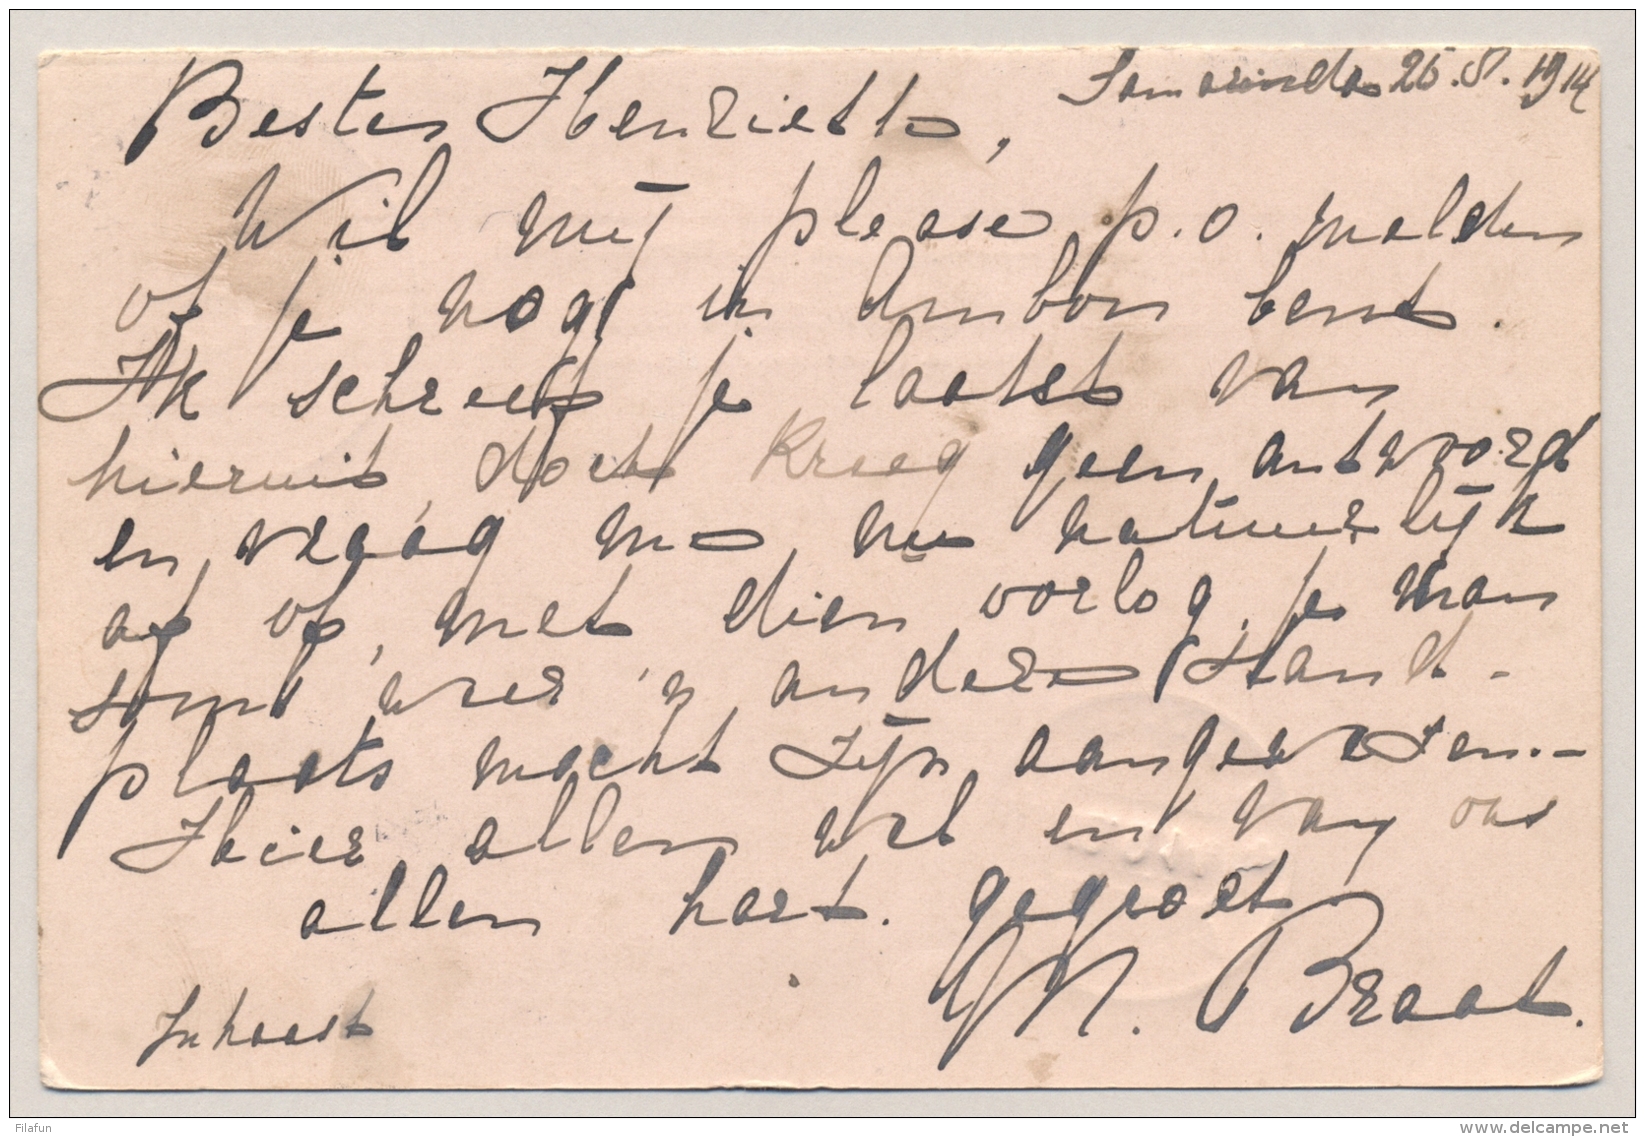 Samarinda 26.8.1914
Beste Henriette,
Wil mij please p.o. melden
of je nog in Ambon bent.
Ik schreef je laatst van
hieruit, doch kreeg geen antwoord
en vraag me nu natuurlijk
af of, met dien oorlog, je man
soms weer 'n andere stand-
plaats mocht zijn aangewezen.-
Hier allen wel en van ons
allen hart. gegroet
M. Braat.
In haast
Filafun
www.delcampe.net